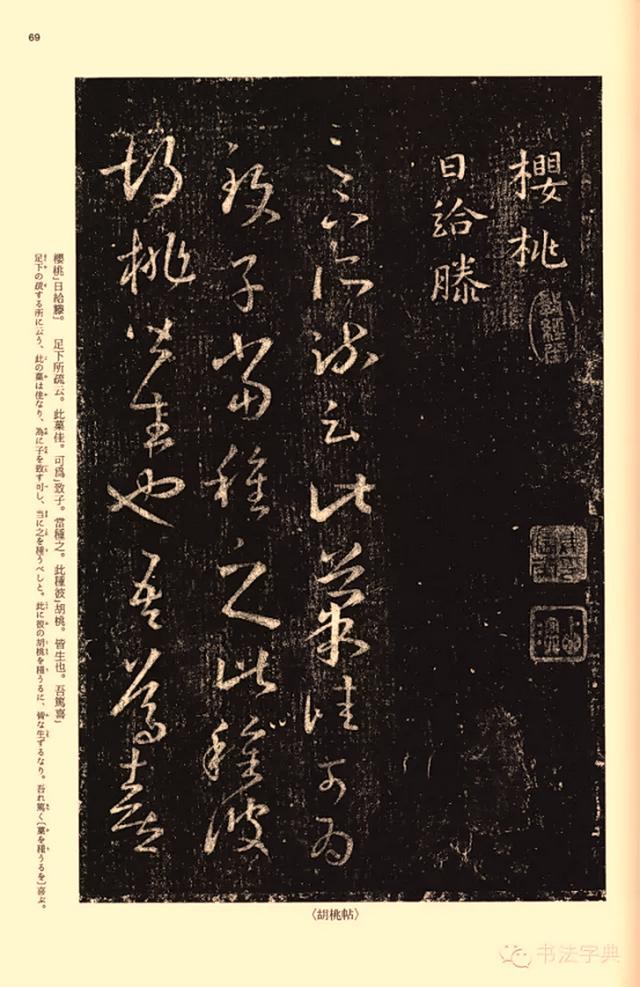 69
櫻桃
日給滕
足下所疏云此菓佳可為
致子當種之此種彼
胡桃皆生也吾篤喜
櫻桃」日給滕」。　足下所疏云。此菓佳。可爲」致子。當種之。此種彼」胡桃。皆生也。吾篤喜」
足下の疏する所に云う、此の菓は佳なり、為に子を致す可し、当に之を種うべしと。此に彼の胡桃を種うるに、皆な生ずるなり。吾れ篤く〔菓を種うるを〕喜ぶ。
〈胡桃帖〉
书法字典